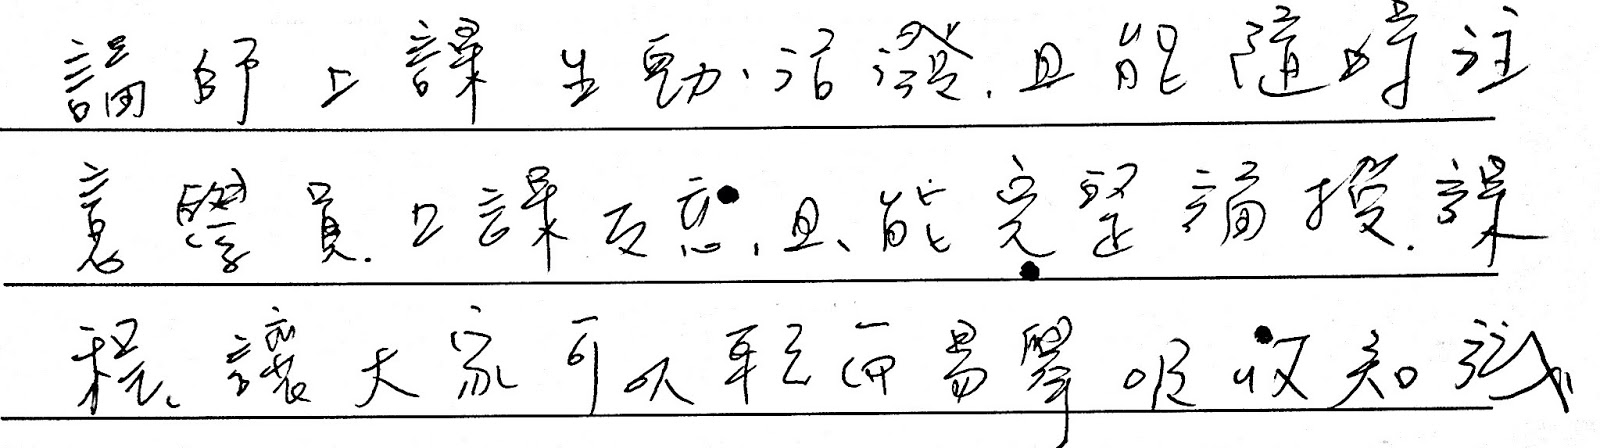 講師上課生動、活潑、且能隨時注
意學員上課反應、且能完整講授課
程、讓大家可以輕而易舉吸收知識